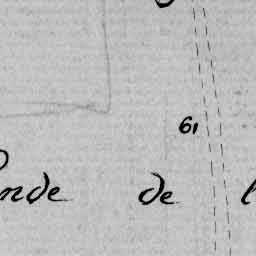 61
nde de l